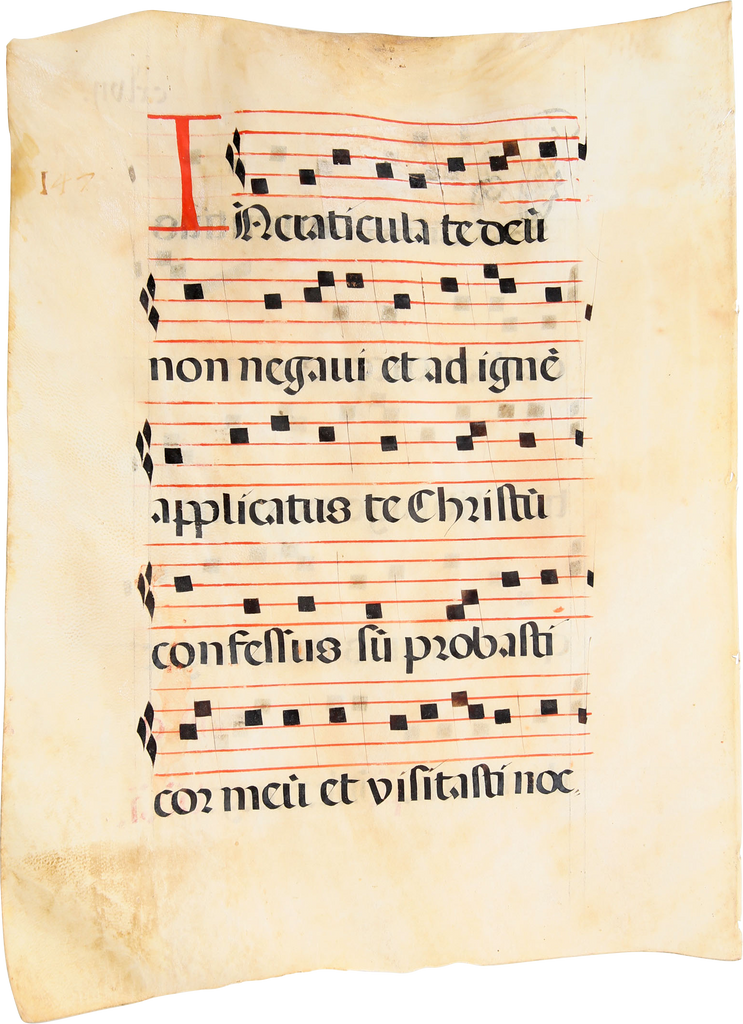 147
IN craticula te deū
non negaui et ad ignē
applicatus te Chriſtū
confeſſus ſū probaſti
cor meū et viſitaſti noc